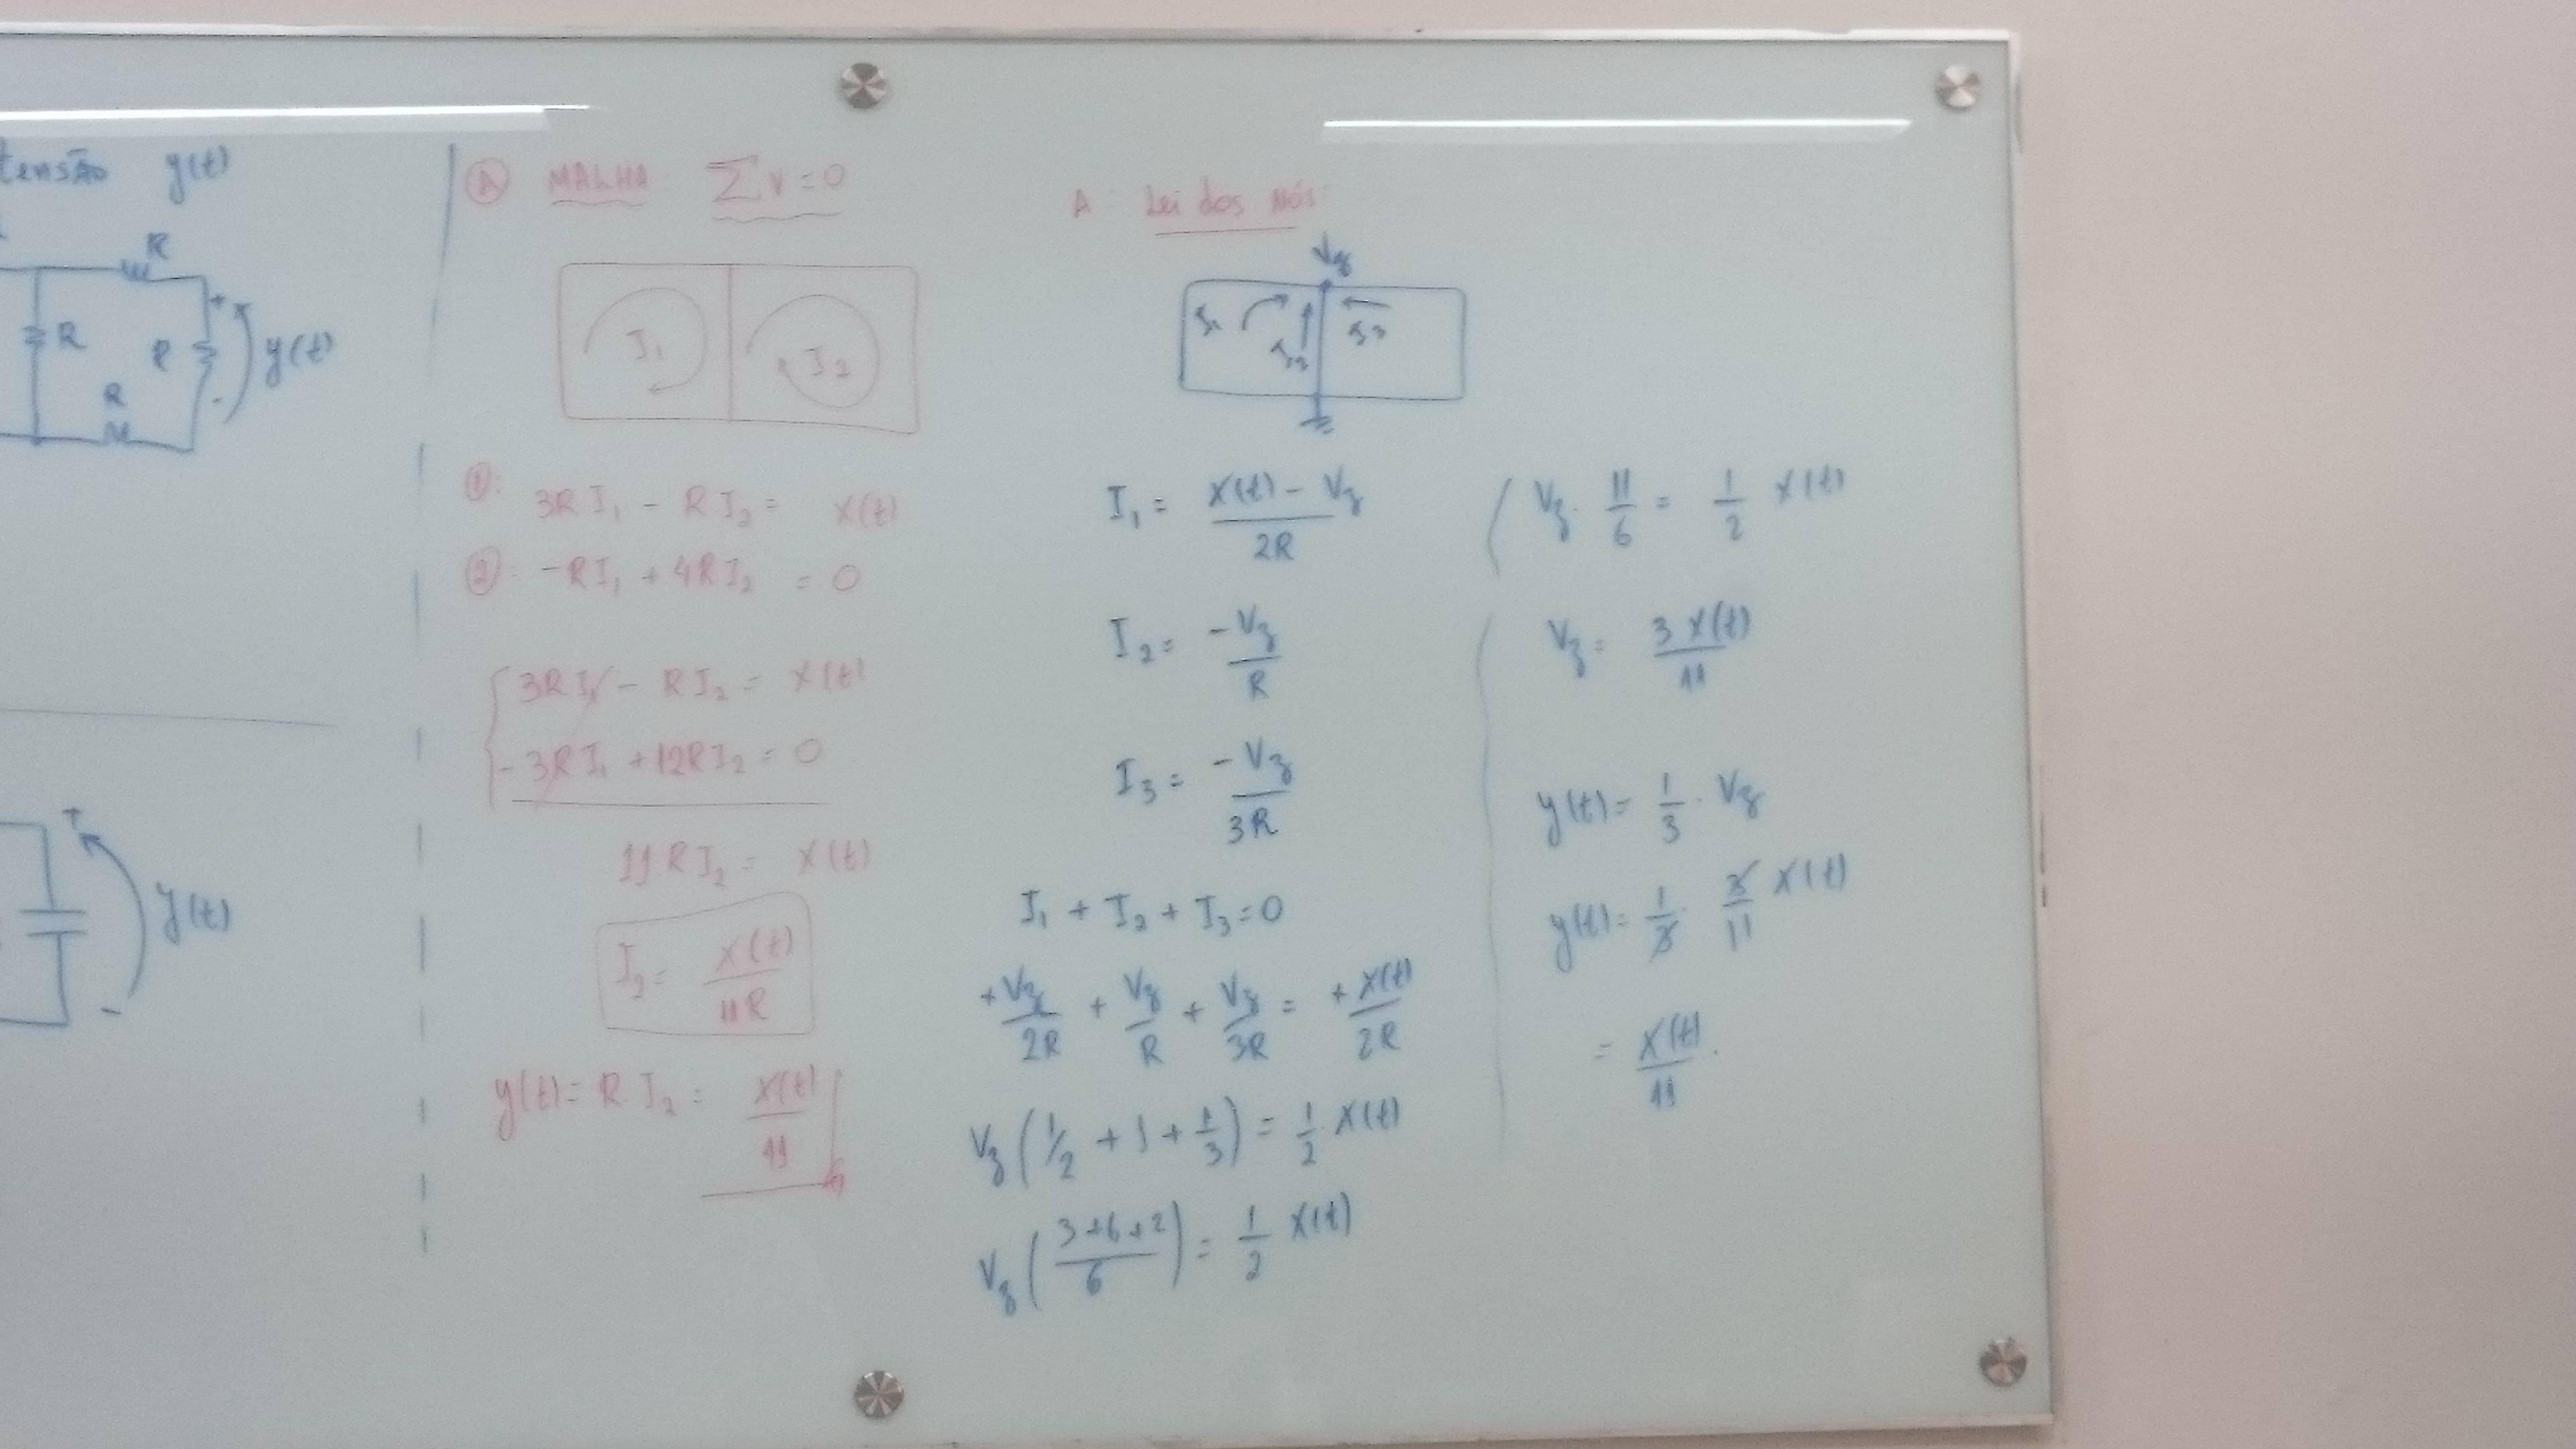 tensão y(t)
R
R
R
R
+
-
y(t)
+
-
y(t)
A MALHA: ∑ V = 0
I₁
I₂
①: 3R I₁ - R I₂ = x(t)
②: -R I₁ + 4R I₂ = 0
3R I₁ - R I₂ = x(t)
-3R I₁ + 12R I₂ = 0
11 R I₂ = x(t)
I₂ = x(t)/11R
y(t) = R I₂ = x(t)/11
A: Lei dos Nós:
V₃
I₁
I₂
I₃
I₁ = (x(t) - V₃)/2R
I₂ = -V₃/R
I₃ = -V₃/3R
I₁ + I₂ + I₃ = 0
+V₃/2R + V₃/R + V₃/3R = +x(t)/2R
V₃ (1/2 + 1 + 1/3) = 1/2 x(t)
V₃ ((3+6+2)/6) = 1/2 x(t)
V₃ · 11/6 = 1/2 x(t)
V₃ = 3x(t)/11
y(t) = 1/3 · V₃
y(t) = 1/3 · 3/11 x(t)
= x(t)/11.